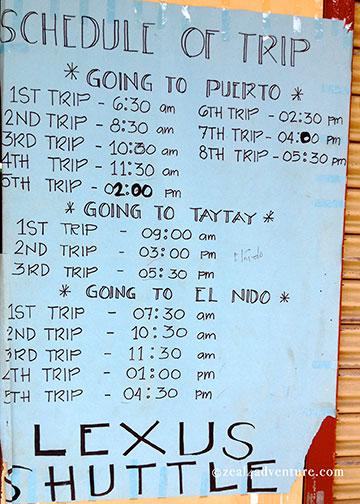 SCHEDULE OF TRIP
* GOING TO PUERTO *
1ST TRIP - 6:30 am
2ND TRIP - 8:30 am
3RD TRIP - 10:30 am
4TH TRIP - 11:30 am
5TH TRIP - 02:00 pm
6TH TRIP - 02:30 pm
7TH TRIP - 04:00 pm
8TH TRIP - 05:30 pm
* GOING TO TAYTAY *
1ST TRIP - 09:00 am
2ND TRIP - 03:00 pm Elnido
3RD TRIP - 05:30 pm
* GOING TO EL NIDO *
1ST TRIP - 07:30 am
2ND TRIP - 10:30 am
3RD TRIP - 11:30 am
4TH TRIP - 01:00 pm
5TH TRIP - 04:30 pm
LEXUS
SHUTTLE
©zeal4adventure.com